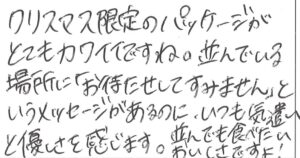 クリスマス限定のパッケージが
とてもカワイイですね。並んでいる
場所に「お待たせしてすみません」と
いうメッセージがあるのに、いつも気遣い
と優しさを感じます。並んでも食べたい
おいしさですよ!